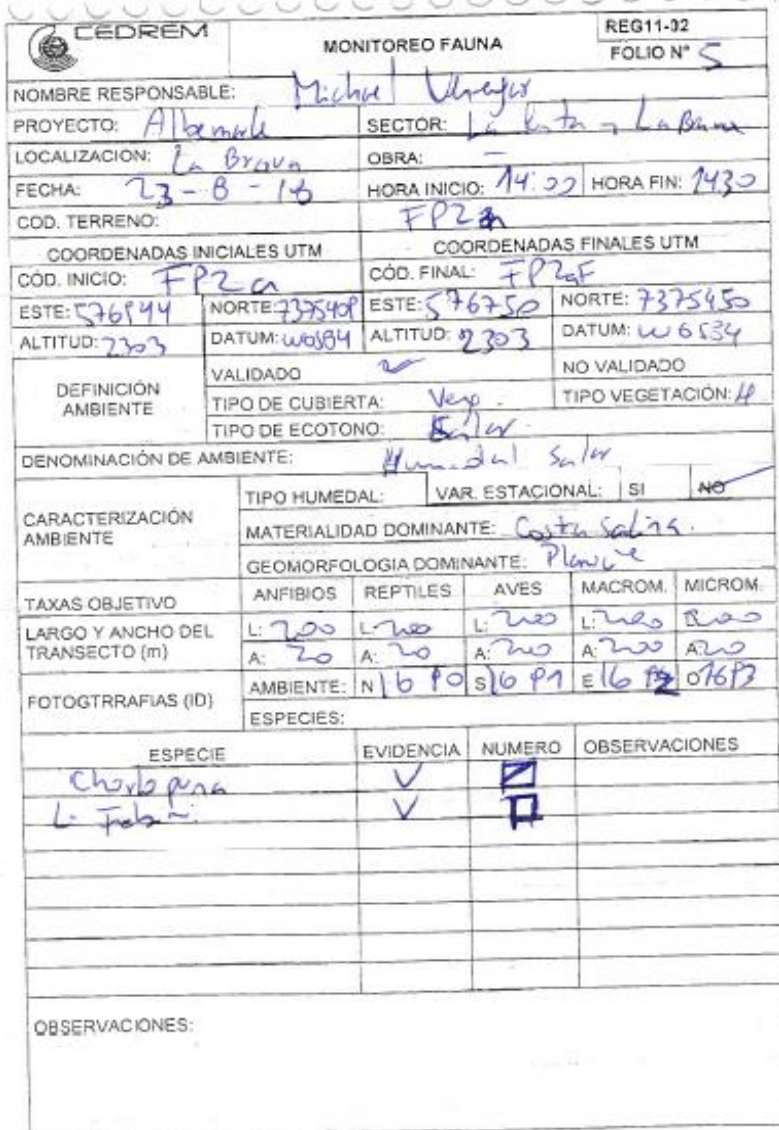 CEDREM
MONITOREO FAUNA
REG11-02
FOLIO N° 5
NOMBRE RESPONSABLE: Michael
PROYECTO: Albemarle SECTOR: La Punta - La Brava
LOCALIZACION: La Brava OBRA: -
FECHA: 23-8-18 HORA INICIO: 14:00 HORA FIN: 1430
COD. TERRENO: FP2a
COORDENADAS INICIALES UTM COORDENADAS FINALES UTM
CÓD. INICIO: FP2a CÓD. FINAL: FP2aF
ESTE: 576944 NORTE: ESTE: 576750 NORTE: 7375450
ALTITUD: 2303 DATUM: WGS84 ALTITUD: 2303 DATUM: WGS84
DEFINICIÓN AMBIENTE
VALIDADO ✓ NO VALIDADO
TIPO DE CUBIERTA: Veg. TIPO VEGETACIÓN: 4
TIPO DE ECOTONO: Salar
DENOMINACIÓN DE AMBIENTE: Humedal Salar
CARACTERIZACIÓN AMBIENTE
TIPO HUMEDAL: VAR. ESTACIONAL: SI NO
MATERIALIDAD DOMINANTE: Costra Salina.
GEOMORFOLOGIA DOMINANTE: Planicie
TAXAS OBJETIVO ANFIBIOS REPTILES AVES MACROM. MICROM.
LARGO Y ANCHO DEL TRANSECTO (m)
L: 200 L: 200 L: 200 L: 200 200
A: 20 A: 20 A: 200 A: 200 A: 20
FOTOGTRRAFIAS (ID)
AMBIENTE: N 16 P0 S 16 P1 E 16 P2 O 16P3
ESPECIES:
ESPECIE EVIDENCIA NUMERO OBSERVACIONES
Chorlo puna V
L. Fabiani V
OBSERVACIONES: